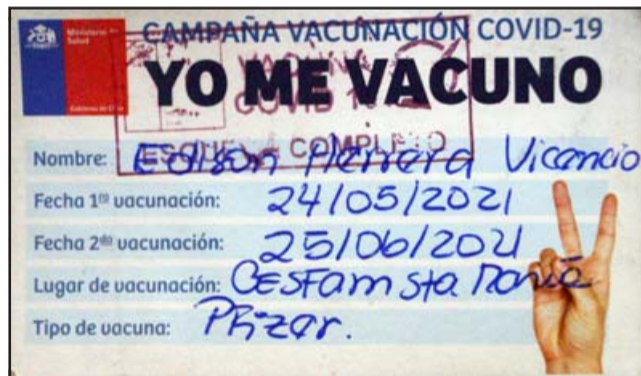 Ministerio de
Salud
Gobierno de Chile
CAMPAÑA VACUNACIÓN COVID-19
YO ME VACUNO
VACUNA
COVID 19
ESQUEMA COMPLETO
Nombre: Edison Herrera Vicencio
Fecha 1ra vacunación: 24/05/2021
Fecha 2da vacunación: 25/06/2021
Lugar de vacunación: CESFAM Sta María
Tipo de vacuna: Pfizer.